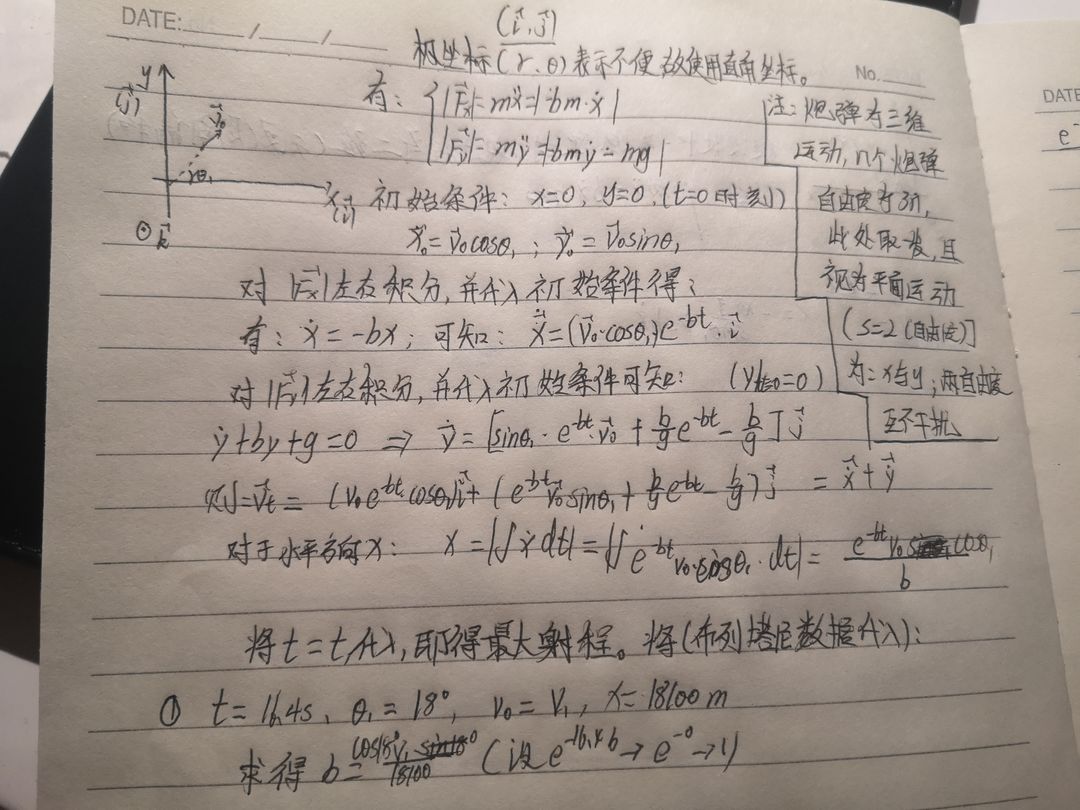 DATE: / /
(i⃗, j⃗)
极坐标(r, θ)表示不便故使用直角坐标。
No.
DATE
e⁻
y
(j⃗)
v⃗₀
θ₁
x(i⃗)
⊙k⃗
有: { |F⃗x|=mẍ=|-bm·ẋ|
|F⃗y|=mÿ=|-bmẏ-mg|
注: 炮弹为三维
运动, n个炮弹
自由度为3n,
此处取一发, 且
视为平面运动
(s=2(自由度)]
为: x与y; 两自由度
互不干扰
初始条件: x=0, y=0, (t=0时刻)
ẋ₀=v⃗₀cosθ₁; ẏ₀=v⃗₀sinθ₁
对|F⃗x|左右积分, 并代入初始条件得:
有: ẋ=-bx; 可知: ẋ=(v⃗₀·cosθ₁)e^{-bt}·i⃗
对|F⃗y|左右积分, 并代入初始条件可知: (y|t=0=0)
ẏ+by+g=0 ⇒ ẏ=[sinθ₁·e^{-bt}·v⃗₀+b/g e^{-bt}-b/g]j⃗
则=v⃗t=(v₀e^{-bt}cosθ₁)i⃗+(e^{-bt}v⃗₀sinθ₁+b/g e^{-bt}-b/g)j⃗=ẋ+ẏ
对于水平方向x: x=|∫ẋdt|=|∫e^{-bt}v₀·cosθ₁·dt|=e^{-bt}v₀cosθ₁/b
将t=t₁代入, 即得最大射程。将(布列塔尼数据代入):
① t=16.4s, θ₁=18°, v₀=v₁, x=18100m
求得b=cos18°v₁/18100 (设e^{-16.4b}→e^{-0}→1)